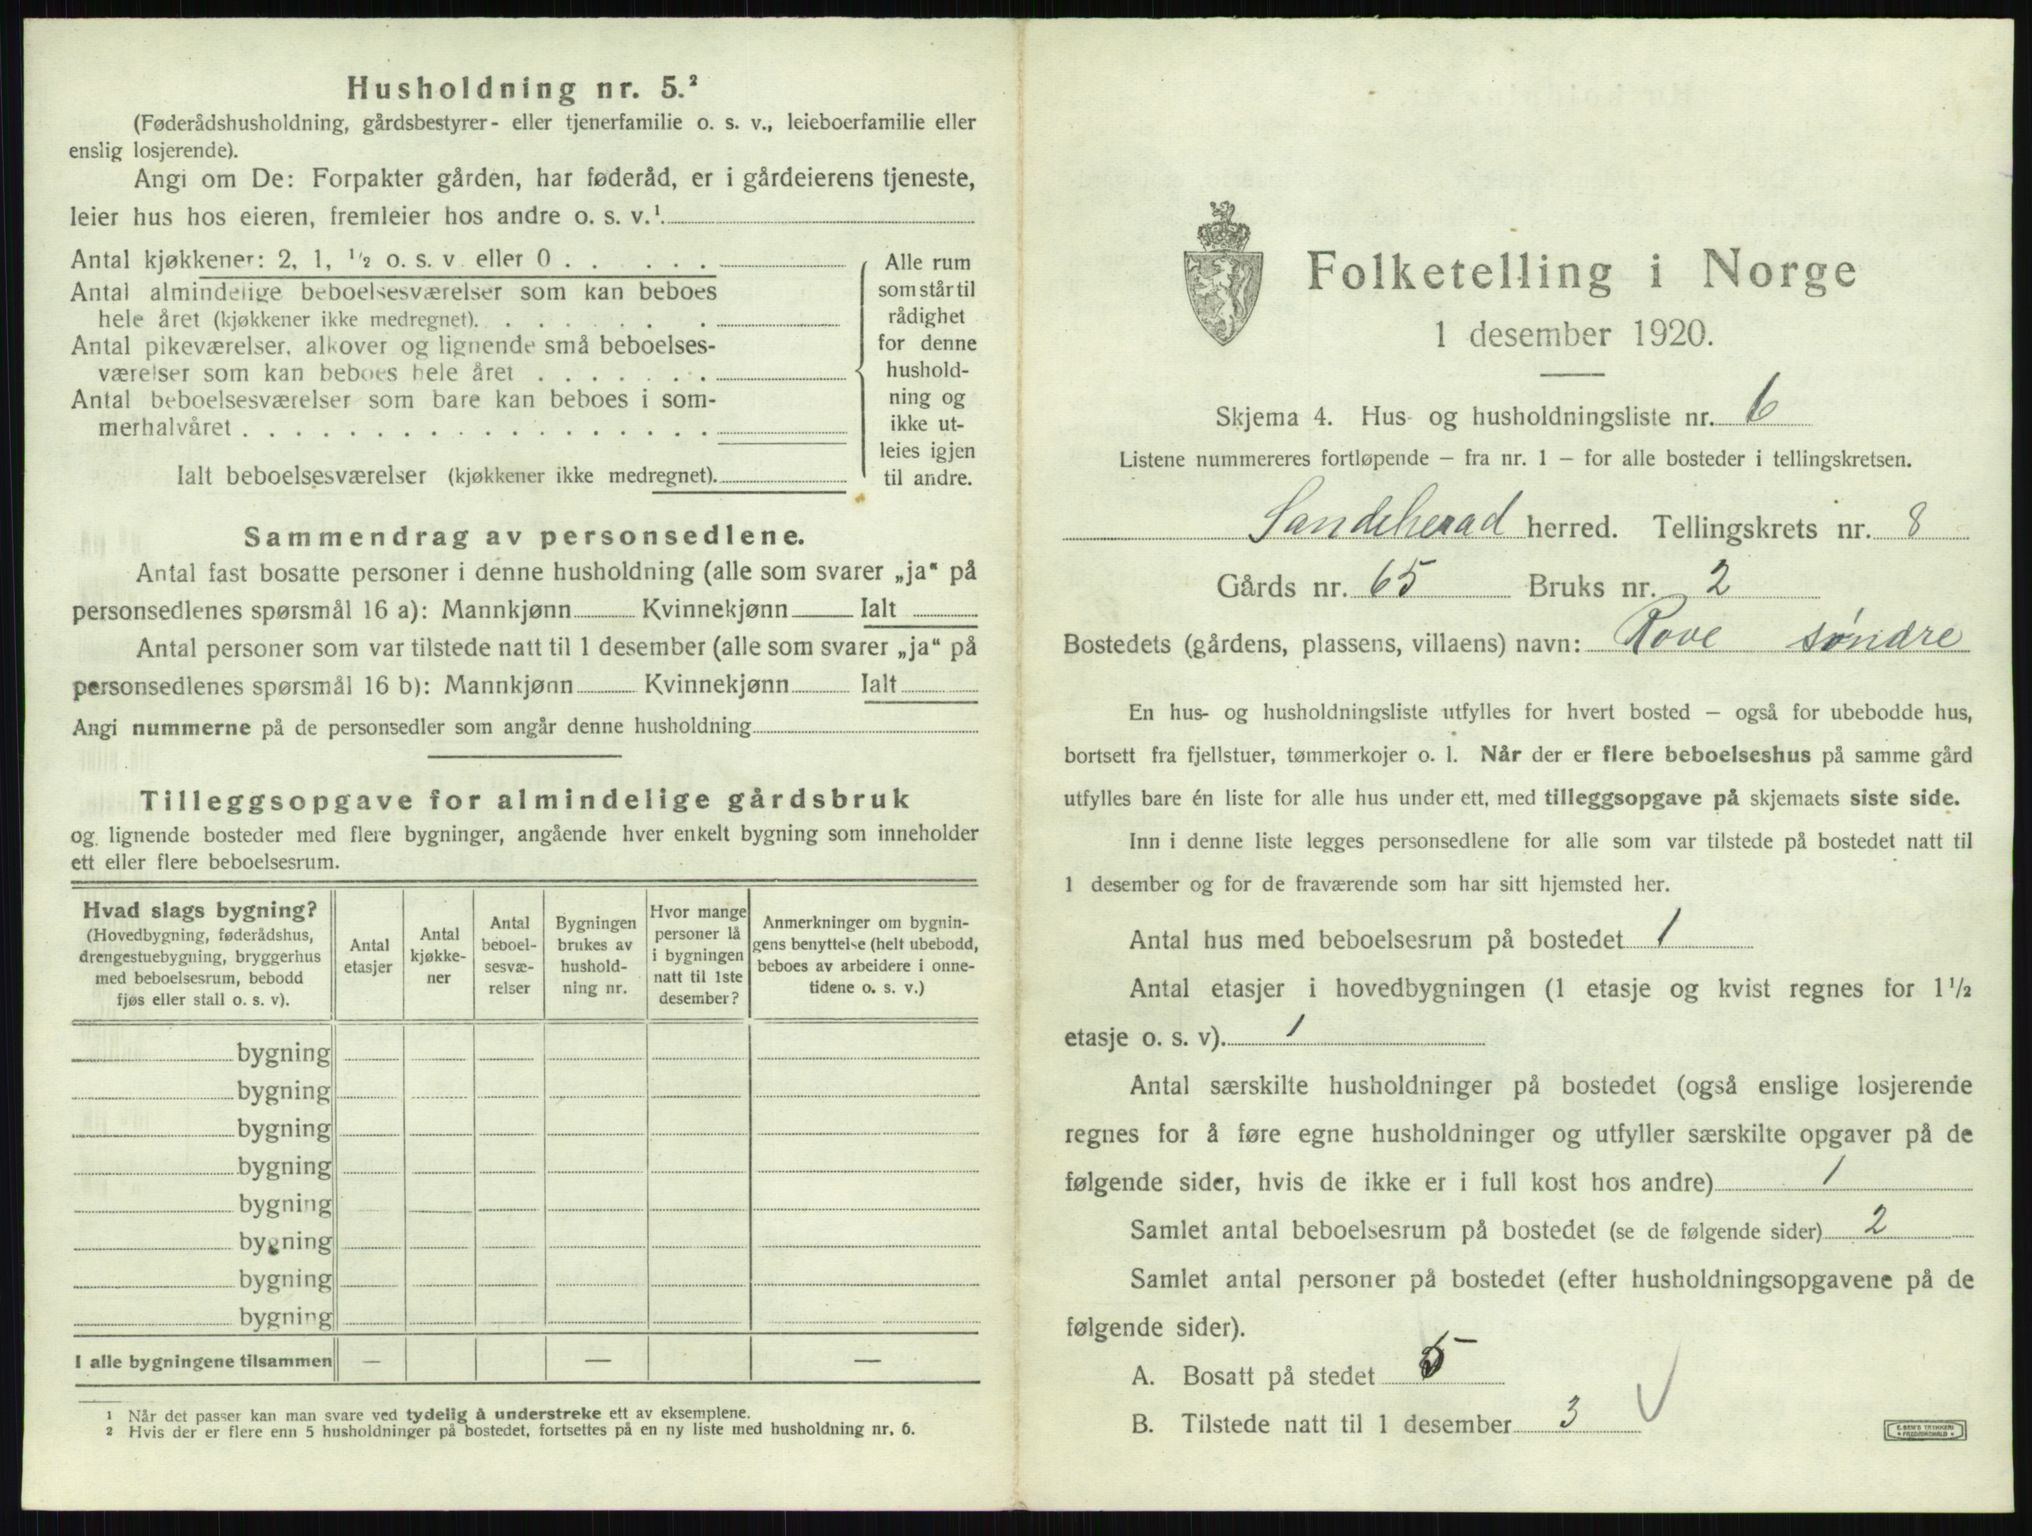 Husholdning nr. 5.²
(Føderådshusholdning, gårdsbestyrer- eller tjenerfamilie o. s. v., leieboerfamilie eller
enslig losjerende).
Angi om De: Forpakter gården, har føderåd, er i gårdeierens tjeneste,
leier hus hos eieren, fremleier hos andre o. s. v.¹
Antal kjøkkener: 2, 1, ½ o. s. v. eller 0
Antal almindelige beboelsesværelser som kan beboes
hele året (kjøkkener ikke medregnet).
Antal pikeværelser, alkover og lignende små beboelses-
værelser som kan beboes hele året
Antal beboelsesværelser som bare kan beboes i som-
merhalvåret
Ialt beboelsesværelser (kjøkkener ikke medregnet).
Alle rum
som står til
rådighet
for denne
hushold-
ning og
ikke ut-
leies igjen
til andre.
Sammendrag av personsedlene.
Antal fast bosatte personer i denne husholdning (alle som svarer „ja“ på
personsedlenes spørsmål 16 a): Mannkjønn Kvinnekjønn Ialt
Antal personer som var tilstede natt til 1 desember (alle som svarer „ja“ på
personsedlenes spørsmål 16 b): Mannkjønn Kvinnekjønn Ialt
Angi nummerne på de personsedler som angår denne husholdning
Tilleggsopgave for almindelige gårdsbruk
og lignende bosteder med flere bygninger, angående hver enkelt bygning som inneholder
ett eller flere beboelsesrum.
Hvad slags bygning?
(Hovedbygning, føderådshus,
drengestuebygning, bryggerhus
med beboelsesrum, bebodd
fjøs eller stall o. s. v).
Antal
etasjer
Antal
kjøkke-
ner
Antal
beboel-
sesvæ-
relser
Bygningen
brukes av
hushold-
ning nr.
Hvor mange
personer lå
i bygningen
natt til 1ste
desember?
Anmerkninger om bygnin-
gens benyttelse (helt ubebodd,
beboes av arbeidere i onne-
tidene o. s. v.)
bygning
bygning
bygning
bygning
bygning
bygning
bygning
bygning
I alle bygningene tilsammen — — —
¹ Når det passer kan man svare ved tydelig å understreke ett av eksemplene.
² Hvis der er flere enn 5 husholdninger på bostedet, fortsettes på en ny liste med husholdning nr. 6.
Folketelling i Norge
1 desember 1920.
Skjema 4. Hus- og husholdningsliste nr. 6
Listene nummereres fortløpende – fra nr. 1 – for alle bosteder i tellingskretsen.
Sandeherad herred. Tellingskrets nr. 8
Gårds nr. 65 Bruks nr. 2
Bostedets (gårdens, plassens, villaens) navn: Rove søndre
En hus- og husholdningsliste utfylles for hvert bosted – også for ubebodde hus,
bortsett fra fjellstuer, tømmerkojer o. l. Når der er flere beboelseshus på samme gård
utfylles bare én liste for alle hus under ett, med tilleggsopgave på skjemaets siste side.
Inn i denne liste legges personsedlene for alle som var tilstede på bostedet natt til
1 desember og for de fraværende som har sitt hjemsted her.
Antal hus med beboelsesrum på bostedet 1
Antal etasjer i hovedbygningen (1 etasje og kvist regnes for 1½
etasje o. s. v). 1
Antal særskilte husholdninger på bostedet (også enslige losjerende
regnes for å føre egne husholdninger og utfyller særskilte opgaver på de
følgende sider, hvis de ikke er i full kost hos andre) 1
Samlet antal beboelsesrum på bostedet (se de følgende sider) 2
Samlet antal personer på bostedet (efter husholdningsopgavene på de
følgende sider).
A. Bosatt på stedet 5
B. Tilstede natt til 1 desember 3